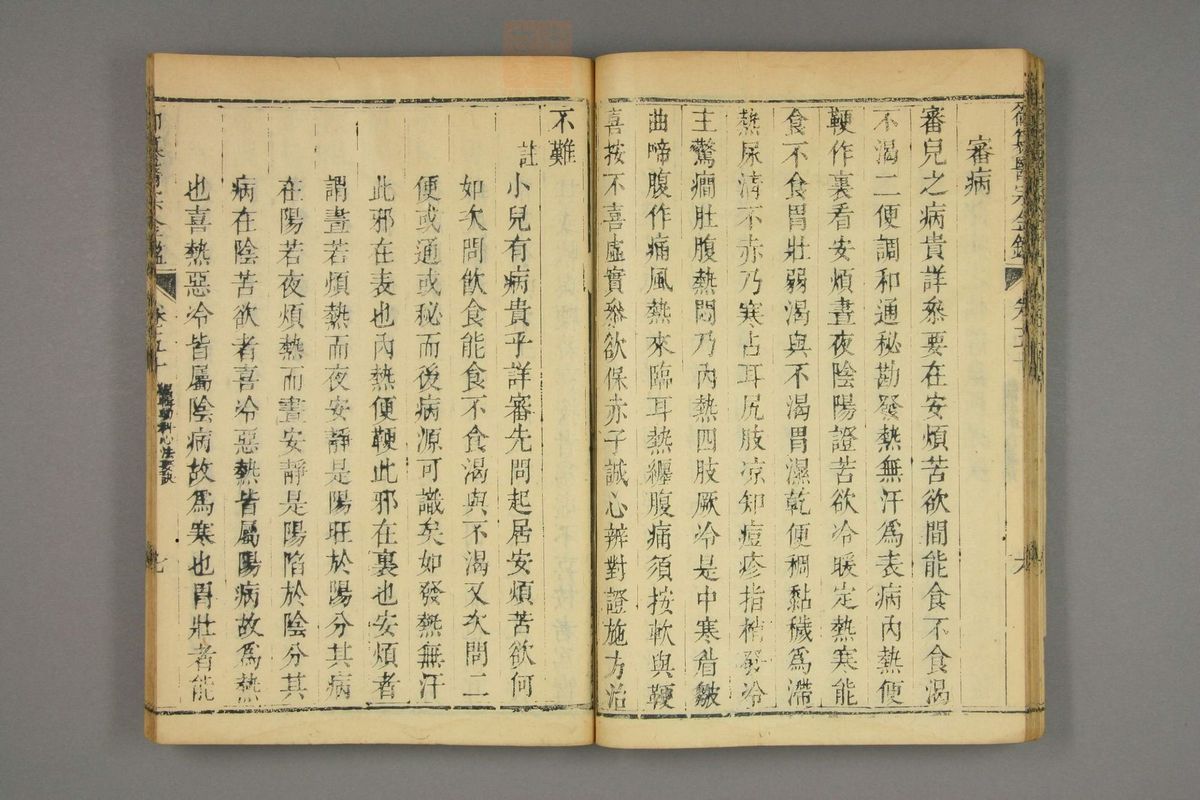 御纂醫宗金鑑 卷五十 六
審病
審兒之病貴詳叅要在安煩苦欲間能食不食渴
不渴二便調和通秘勘發熱無汗爲表病內熱便
鞕作裏看安煩晝夜陰陽證苦欲冷暖定熱寒能
食不食胃壯弱渴與不渴胃濕乾便稠黏穢爲滯
熱尿清不赤乃寒占耳尻肢凉知痘疹指梢發冷
主驚癇肚腹熱悶乃內熱四肢厥冷是中寒眉皺
曲啼腹作痛風熱來臨耳熱纏腹痛須按軟與鞕
喜按不喜虛實叅欲保赤子誠心辨對證施方治
不難
註小兒有病貴乎詳審先問起居安煩苦欲何
如次問飲食能食不食渴與不渴又次問二
便或通或秘而後病源可識矣如發熱無汗
此邪在表也內熱便鞕此邪在裏也安煩者
謂晝若煩熱而夜安靜是陽旺於陽分其病
在陽若夜煩熱而晝安靜是陽陷於陰分其
病在陰苦欲者喜冷惡熱皆屬陽病故爲熱
也喜熱惡冷皆屬陰病故爲寒也胃壯者能
醫宗金鑑 卷五十 幼科心法要訣 七